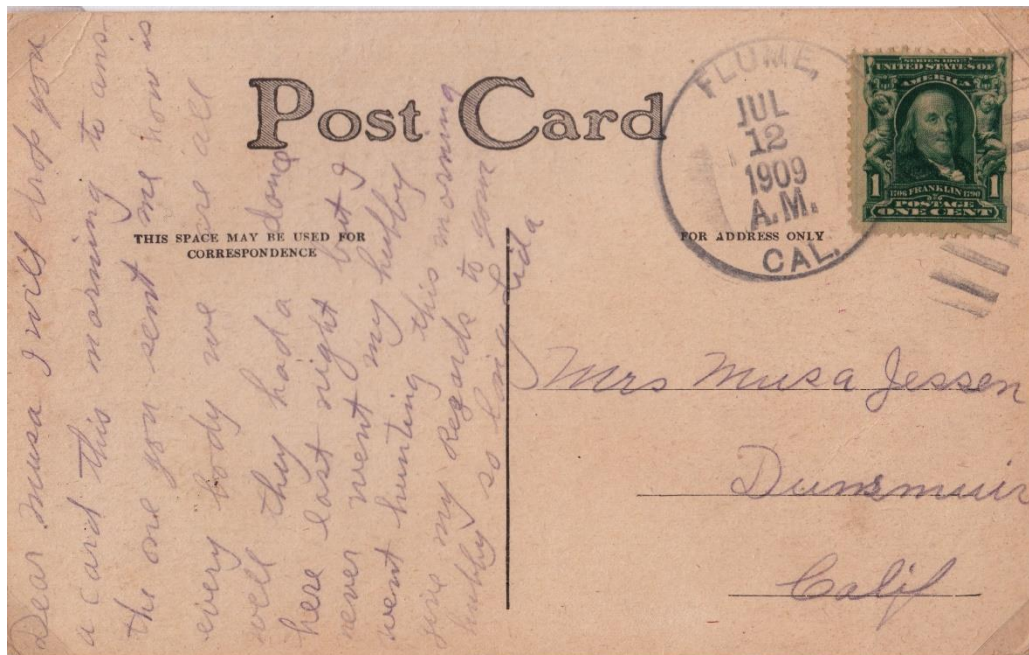 Post Card
THIS SPACE MAY BE USED FOR
CORRESPONDENCE
FOR ADDRESS ONLY
FLUME,
JUL
12
1909
A.M.
CAL.
SERIES 1902
UNITED STATES OF
AMERICA
1 1706 FRANKLIN 1790 1
POSTAGE
ONE CENT
Dear Musa I will drop you
a card this morning to ans
the one you sent me how is
every body we are all
well they had a dance
here last night but I
never went my hubby
went hunting this morning
give my Regards to your
hubby so long Lida
Mrs Musa Jessen
Dunsmuir
Calif